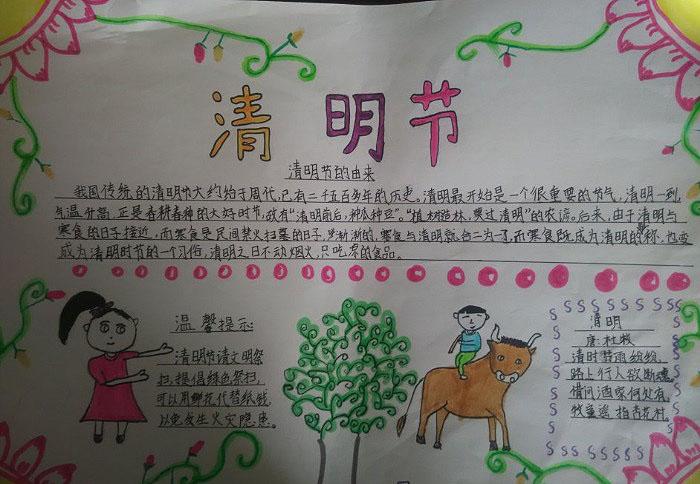 清明节
清明节的由来
我国传统的清明节大约始于周代,已有二千五百多年的历史。清明最开始是一个很重要的节气,清明一到
气温升高,正是春耕春种的大好时节,故有"清明前后,种瓜种豆"。"植树造林,莫过清明"的农谚。后来,由于清明与
寒食的日子接近,而寒食是民间禁火扫墓的日子,渐渐的,寒食与清明就合二为一了,而寒食既成为清明的称,也变
成为清明时节的一个习俗,清明之日不动烟火,只吃凉的食品。
温馨提示
清明节请文明祭
扫,提倡绿色祭扫,
可以用鲜花代替纸钱
以免发生火灾隐患。
清明
唐:杜牧
清时节雨纷纷,
路上行人欲断魂
借问酒家何处有,
牧童遥指杏花村